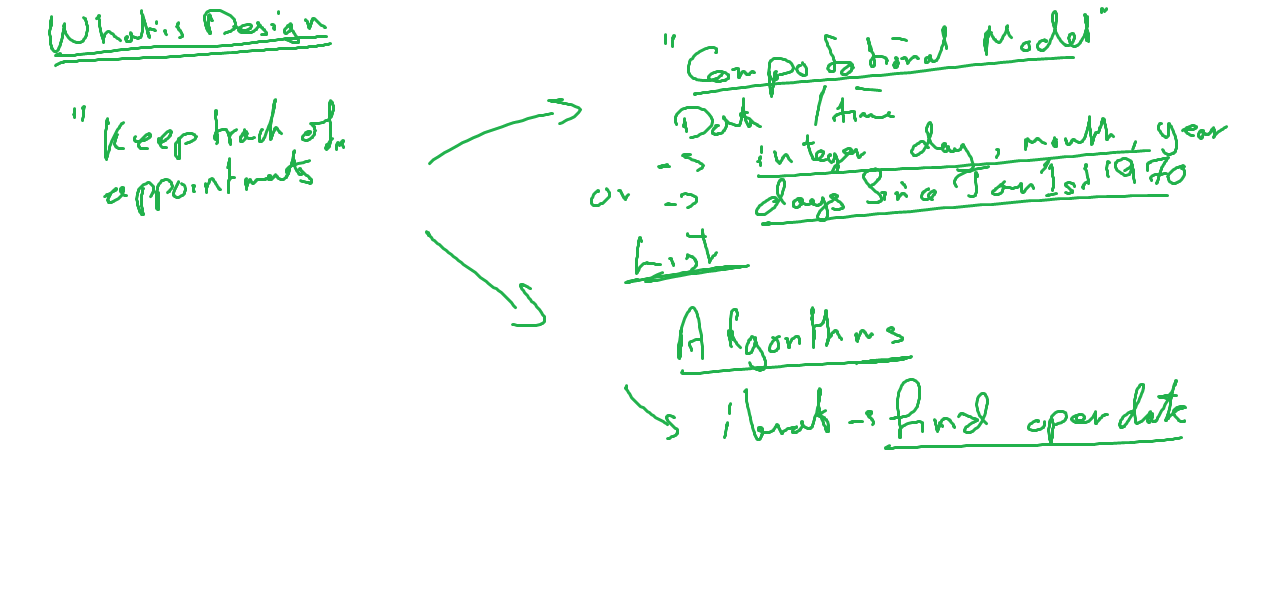 What is Design
"Keep track of
appointments"
"Computational Model"
Date / time
-> integer day, month, year
or -> days since Jan 1st 1970
List
Algorithms
iterate -> find open date